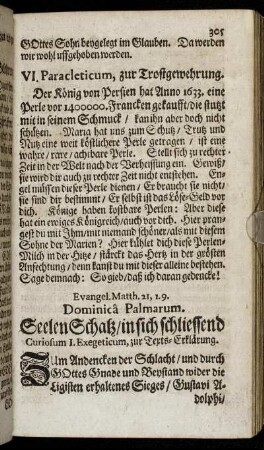 305
GOttes Sohn beygelegt im Glauben. Da werden
wir wohl uffgehoben werden.
VI. Paracleticum, zur Trostgewehrung.
Der König von Persien hat Anno 1633. eine
Perle vor 1400000. Francken gekaufft/ die stutzt
mit in seinem Schmuck/ kan ihn aber doch nicht
schützen. Maria hat uns zum Schutz/ Trutz und
Nutz eine weit köstlichere Perle getragen/ ist eine
wahre/ rare/ achtbare Perle. Stellt sich zu rechter
Zeit in der Welt nach der Verheissung ein. Gewiß/
sie wird dir auch zu rechter Zeit nicht entstehen. En-
gel müssen dieser Perle dienen/ Er braucht sie nicht/
sie sind dir bestimmt/ Er selbst ist das Löse-Geld vor
dich. Könige haben kostbare Perlen: Aber diese
hat ein ewiges Königreich/ auch vor dich. Hier pran-
gest du mit Ihm/ mit niemand schöner/ als mit diesem
Sohne der Marien? Hier kühlet dich diese Perlen-
Milch in der Hitze/ stärckt das Hertz in der grösten
Anfechtung/ denn kanst du mit dieser alleine bestehen.
Sage demnach: So gib/ daß ich daran gedencke!
Evangel. Matth. 21, 1.9.
Dominicâ Palmarum.
Seelen Schatz/ in sich schliessend
Curiosum I. Exegeticum, zur Texts-Erklärung.
ZUm Andencken der Schlacht/ und durch
GOttes Gnade und Beystand wider die
Ligisten erhaltenes Sieges/ Gustavi A-
dolphi/